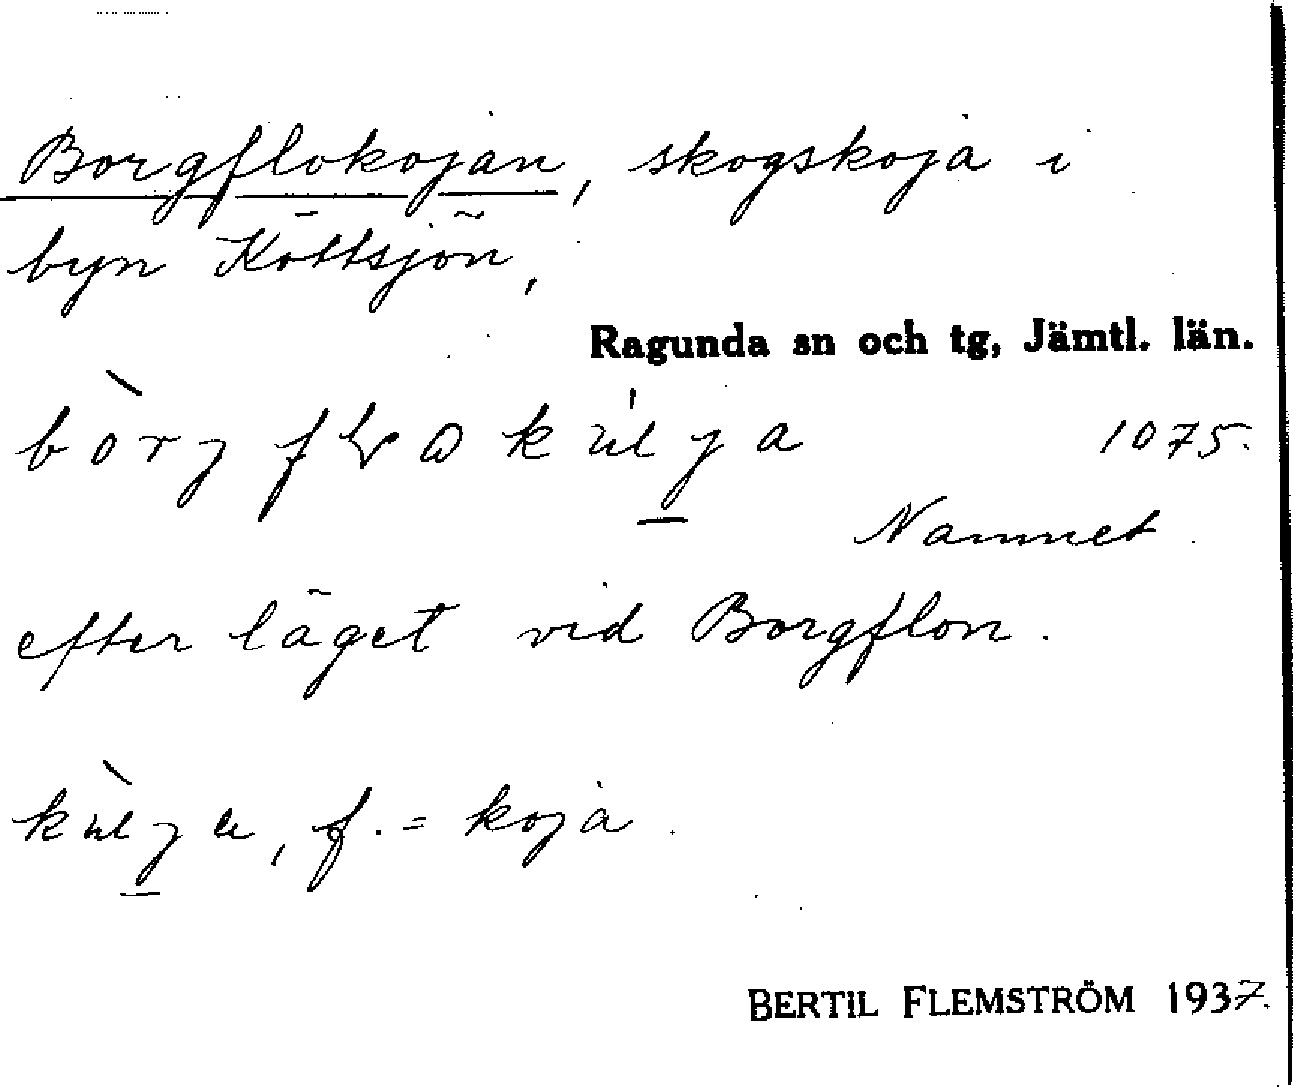 Borgflokojan, skogskoja i
byn Köttsjön,
Ragunda sn och tg, Jämtl. län.
1075.
Namnet
efter läget vid Borgflon.
f. = koja.
BERTIL FLEMSTRÖM 1937.